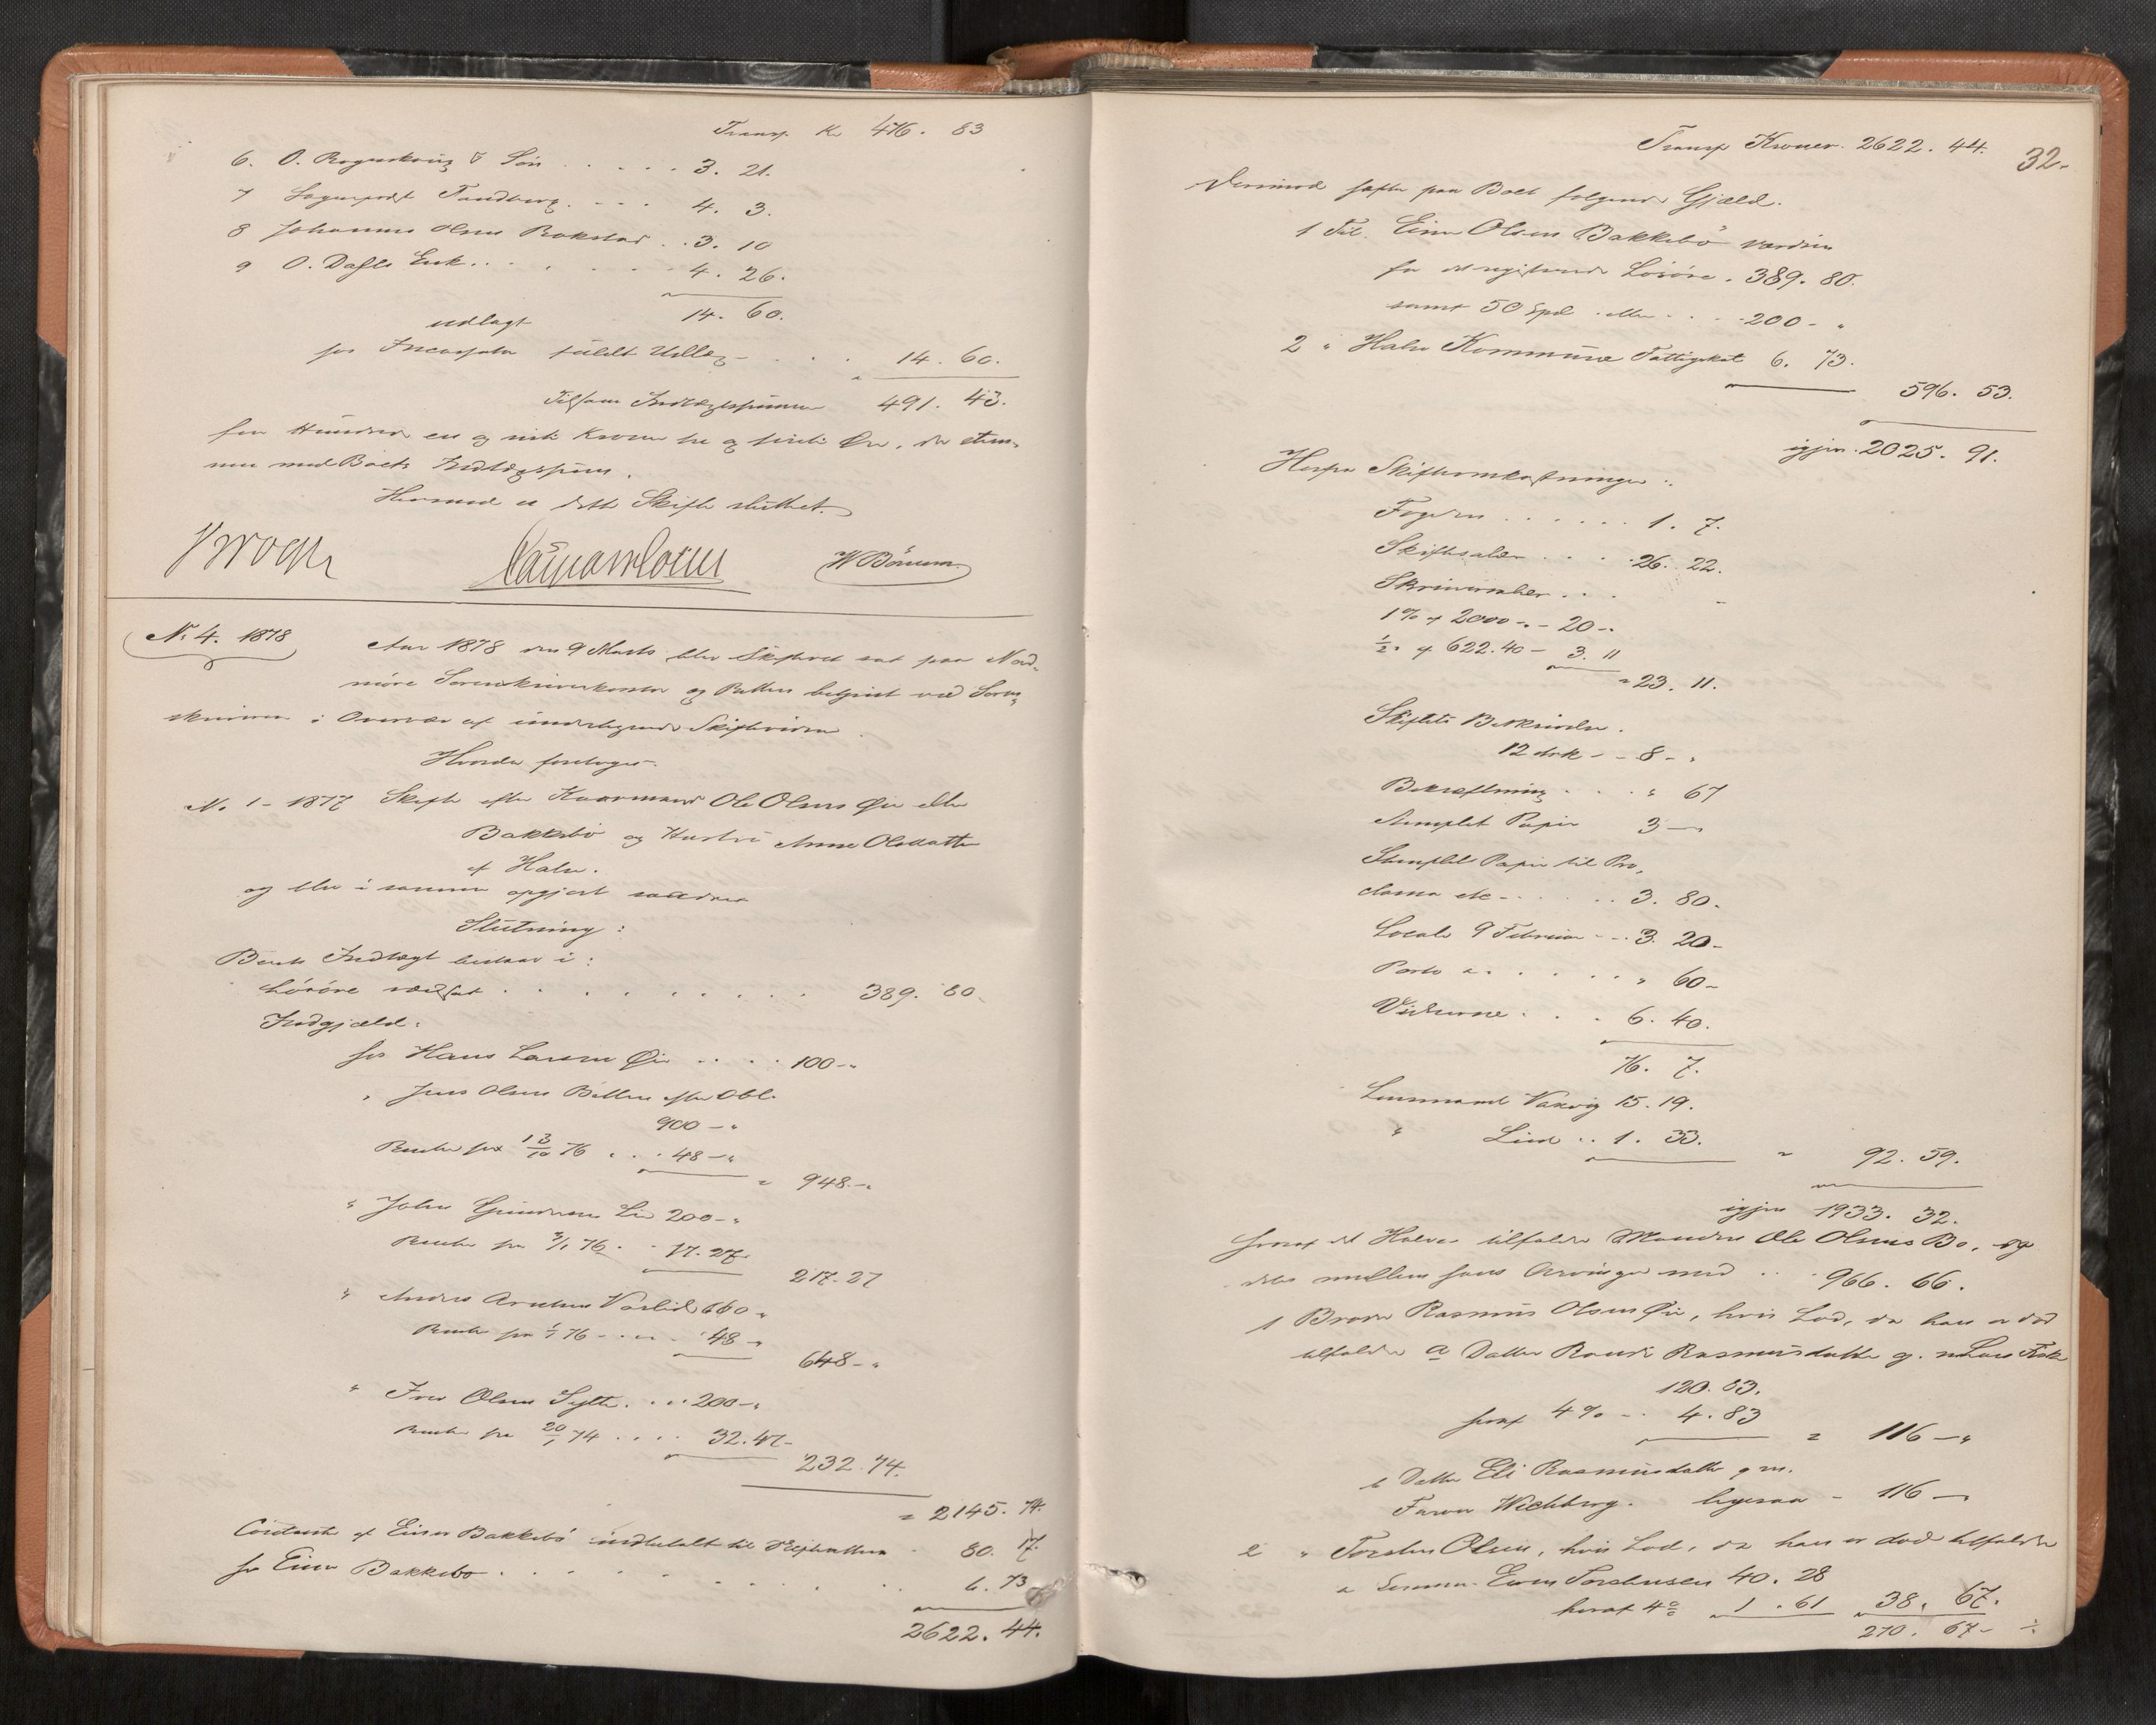 Transp. Kr 476. 83
6. O. Rognskoug & Søn . . . . 3. 21.
7 Sogneprest Tandberg. - - - 4. 3.
8 Johannes Olsen Rokstad . . 3. 10
9 O. Dahls Enk. . . . . . 4. 26.
14. 60.
udlagt
for Incassator fuldt Udlæg - . . . 14. 60.
Tilsam Indtægtssummen 491. 43.
fire Hundrede en og niti Kroner tre og firti Øre, der stem-
mer med Boets Indtægtssum.
Hermed er dette Skifte sluttet.
N. 4. 1878
Aar 1878 den 9 Marts blev Skifteret sat paa Nord-
møre Sorenskriverkontor og Retten betjent ved Soren-
skriveren i Overvær af undertegnede Skiftevidner.
Hvorda foretoges.
No 1 - 1877 Skifte efter Kaarmand Ole Olsen Øie eller
Bakkebø og Hustru Anne Olsdatter
af Halse.
og blev i samme opgjort saadan
Slutning:
Boets Indtægt bestaar i:
Løsøre værdsat . . . . . . . . . 389. 80.
Indgjæld:
hos Hans Larsen Øie . . . . 100-"
" Jens Olsen efter Obl.
900-"
Renter fra 13/10 76 . . . 48-"
= 948.-"
" John Gundersen Lie 200-"
Renter fra 3/1 76 . . 17. 27.
217. 27
" Anders Arntsen 600 "
Renter fra 1/1 76 - . . - 48 -"
648-"
" Iver Olsen Sylte . . . 200-"
Renter fra 20/1 74 . . . . 32. 47-
232. 74.
= 2145. 74.
af Einer Bakkebø indbetalt til - 80. 17.
for Einer Bakkebø . . . . . . . . . 6. 73
2622. 44.
Transp Kroner. 2622. 44. 32.
Derimod hefter paa Boet følgende Gjæld.
1 Til Einer Olsen Bakkebø værdien
for det registrerede Løsøre. 389. 80.
samt 50 Spd. eller . . . . 200 - "
2 " Halse Kommune Fattigskat 6. 73.
596. 53.
igjen. 2025. 91.
Herfra Skifteomkostninger:
Fogden . . . . . . 1. 7.
Skiftesalær . . . . 26. 22.
Skriversalær . . .
1% af 2000 -. - 20 -.
1/2 " af 622. 40 - 3. 11
= 23. 11.
Skiftets Beskrivelse.
12 Ark - - 8 - "
Bekræftning . . . " 67
Stemplet Papir 3 -"
Stemplet Papir til Pro,
clama etc - . . . . . 3. 80.
Locale 9 Februar - - . 3. 20 -
Porto . . . . . . " 60 -
Vidnerne . . . . 6. 40.
76. 7.
Lensmand Vaagvig 15. 19.
" Lied . . 1. 33.
= 92. 59.
igjen 1933. 32.
hvoraf det Halve tilfalder Manden Ole Olsens Bo, og
deles mellem hans Arvinger med . . . 966. 66.
1 Broder Rasmus Olsen Øie, hvis Lod, da han er død
tilfalder a Datter Randi Rasmusdatter g. m.
120. 83.
heraf 4% - . 4. 83
= 116 - "
b Datter Eli Rasmusdatter g m.
Wichberg. ligesaa - 116 -"
2 " Torsten Olsen, hvis Lod, da han er død tilfalder
a Sønnen Even Torstensen 40. 28
heraf 4% 1. 61 38. 67.
270. 67 -